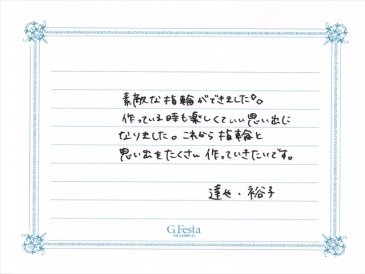 素敵な指輪ができました!。
作っている時も楽しくていい思い出に
なりました。これから指輪と
思い出をたくさん作っていきたいです。
達也・裕子
G.Festa